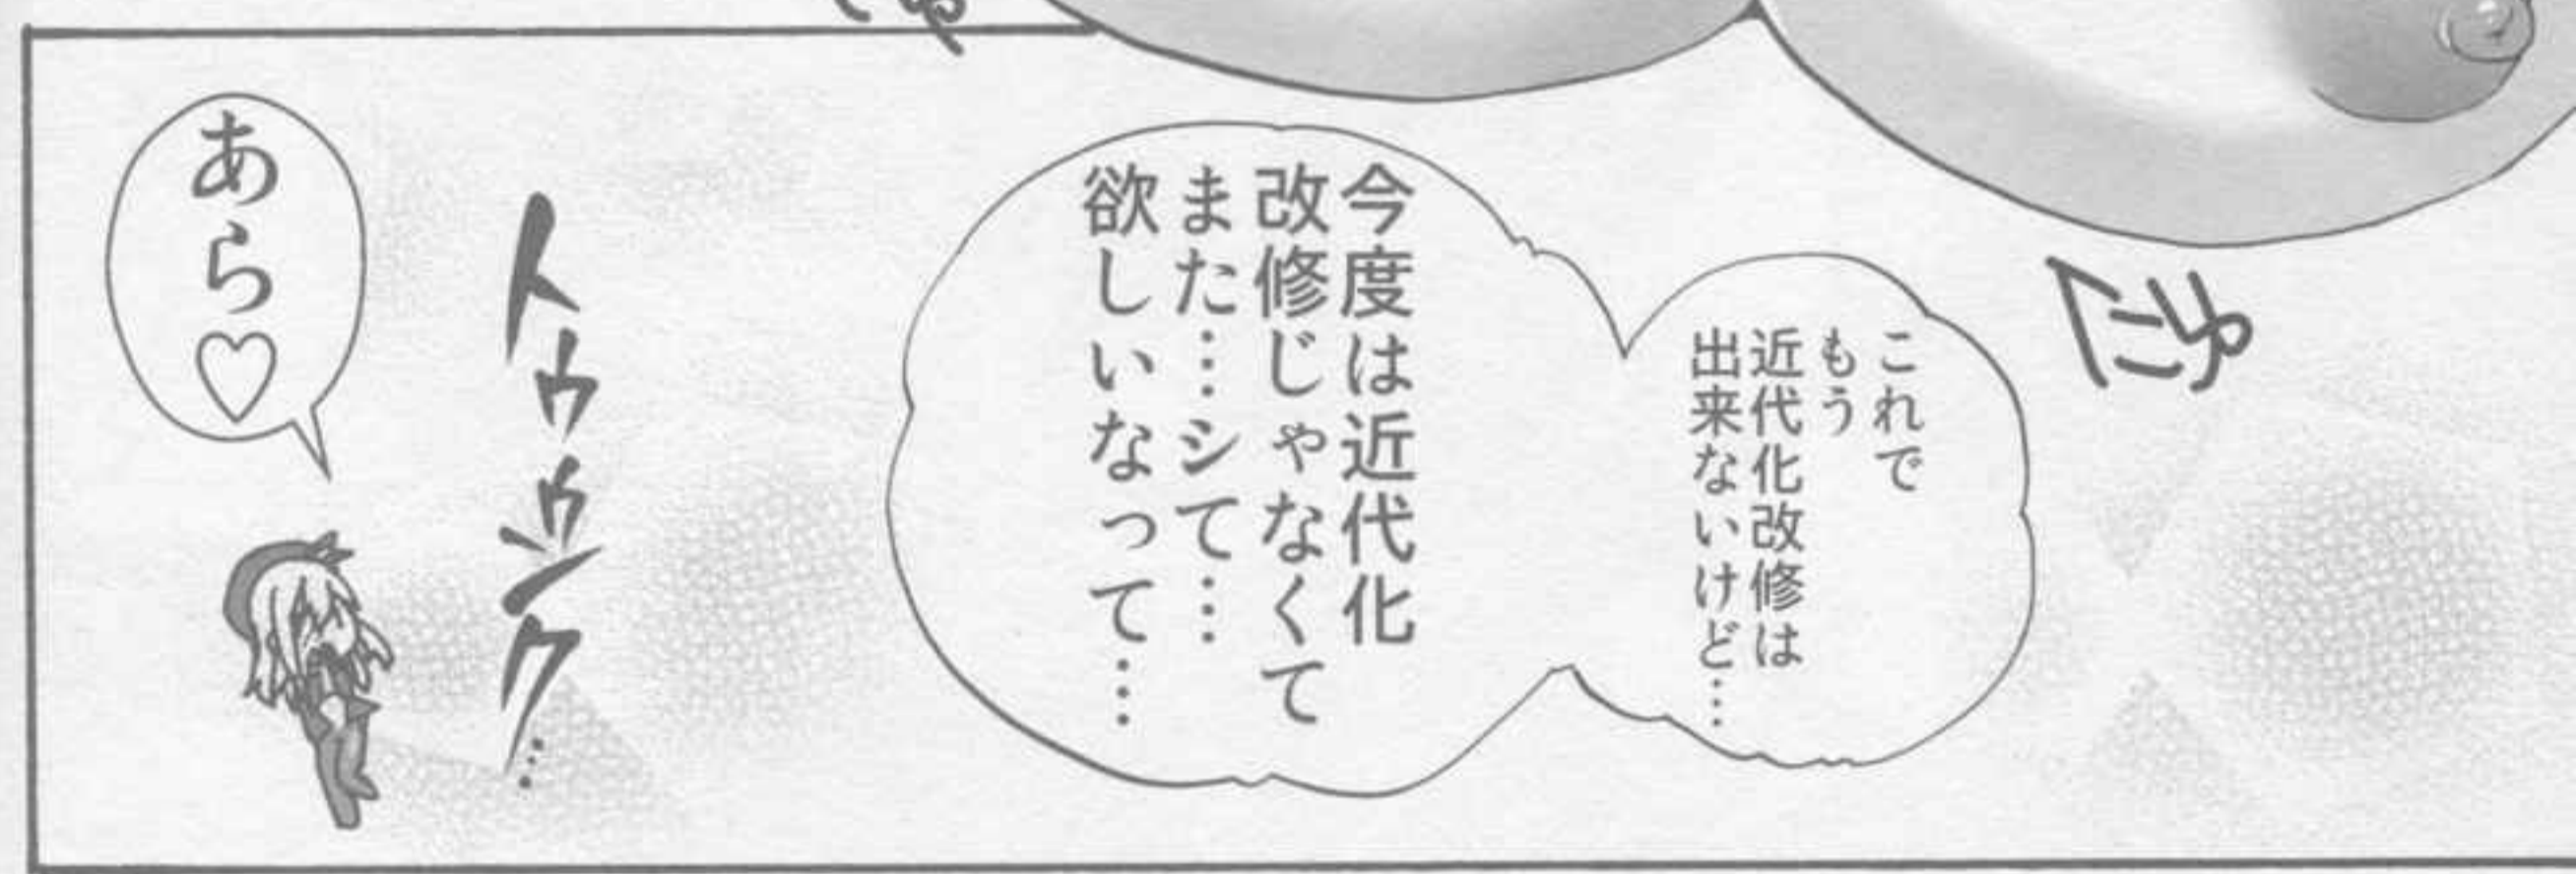 これで
もう
近代化改修は
出来ないけど…
今度は近代化
改修じゃなくて
また…シて…
欲しいなって…
トゥゥンク…
あら♡